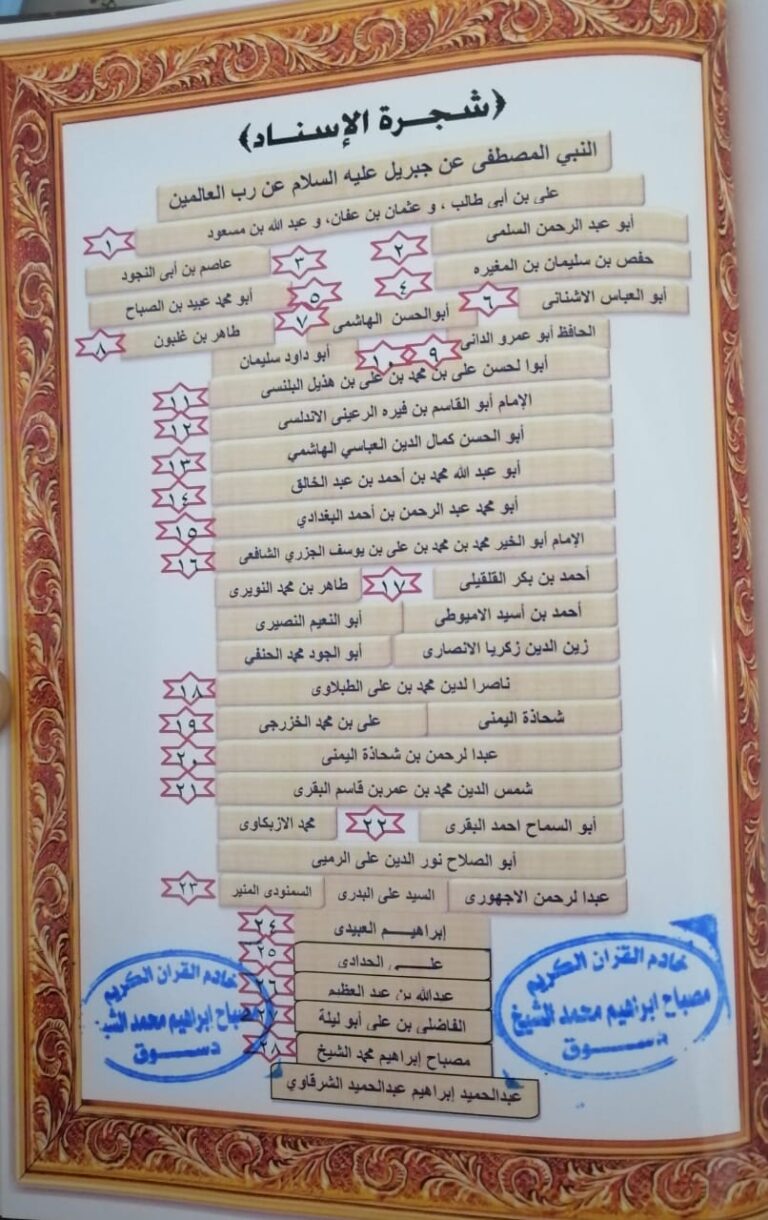 ﴿شجرة الإسناد﴾
النبي المصطفى عن جبريل عليه السلام عن رب العالمين
على بن أبى طالب ، و عثمان بن عفان، و عبد الله بن مسعود ١
أبو عبد الرحمن السلمى ٢ عاصم بن أبى النجود ٣
حفص بن سليمان بن المغيره ٤ أبو محمد عبيد بن الصباح ٥
أبو العباس الاشنانى ٦ أبوالحسن الهاشمى ٧ طاهر بن غلبون ٨
الحافظ أبو عمرو الدانى ٩ ١٠ أبو داود سليمان
أبوا لحسن على بن محمد بن على بن هذيل البلنسى ١١
الإمام أبو القاسم بن فيره الرعينى الاندلسى ١٢
أبو الحسن كمال الدين العباسي الهاشمي ١٣
أبو عبد الله محمد بن أحمد بن عبد الخالق ١٤
أبو محمد عبد الرحمن بن أحمد البغدادي ١٥
الإمام أبو الخير محمد بن محمد بن على بن يوسف الجزري الشافعى ١٦
أحمد بن بكر القلقيلى ١٧ طاهر بن محمد النويرى
أحمد بن أسيد الاميوطى أبو النعيم النصيرى
زين الدين زكريا الانصارى أبو الجود محمد الحنفي
ناصرا لدين محمد بن على الطبلاوى ١٨
شحاذة اليمنى على بن محمد الخزرجى ١٩
عبدا لرحمن بن شحاذة اليمنى ٢٠
شمس الدين محمد بن عمربن قاسم البقرى ٢١
أبو السماح احمد البقرى ٢٢ محمد الازبكاوى
أبو الصلاح نور الدين على الرميى
عبدا لرحمن الاجهورى السيد على البدرى السمنودى المنير ٢٣
إبراهيم العبيدى ٢٤
على الحدادى ٢٥
عبدالله بن عبد العظيم ٢٦
الفاضلى بن على أبو ليلة ٢٧
مصباح إبراهيم محمد الشيخ ٢٨
عبدالحميد إبراهيم عبدالحميد الشرقاوي
خادم القران الكريم
مصباح ابراهيم محمد الشيخ
دسوق
خادم القران الكريم
مصباح ابراهيم محمد الشيخ
دسوق